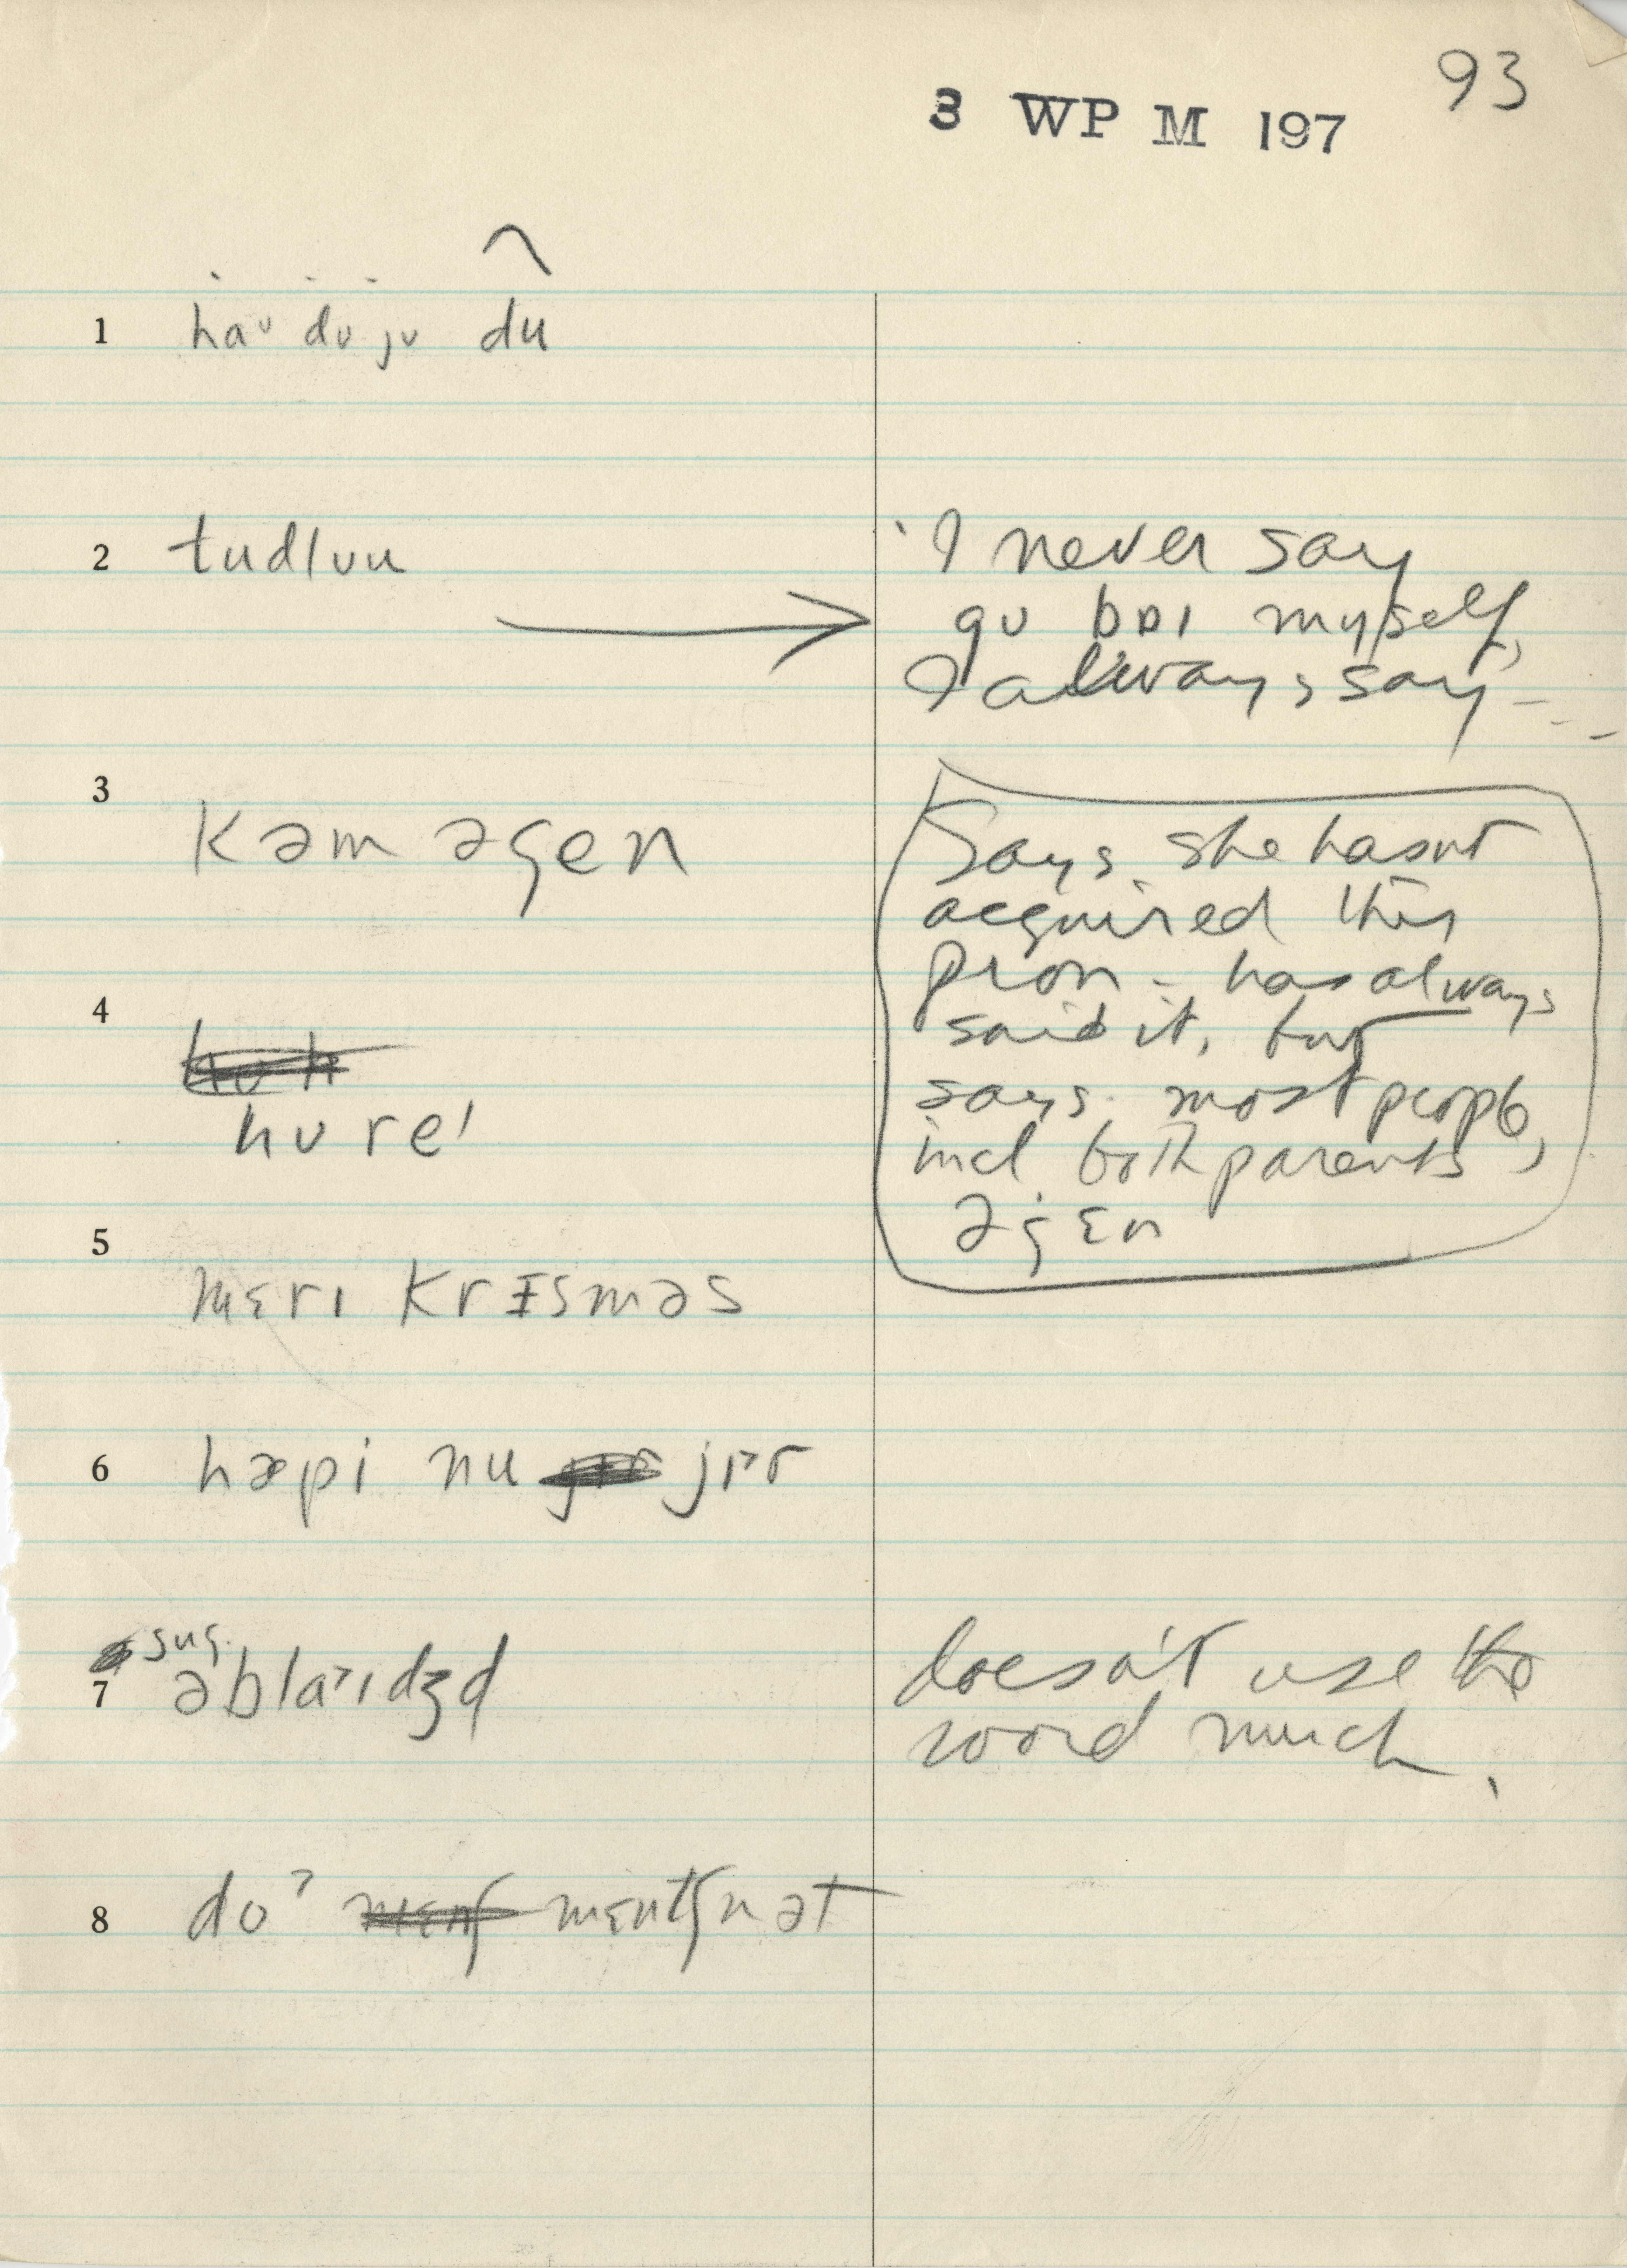 93
3 WP M 197
1 haᴜ dᴜ jᴜ du
2 tudlᴜu
'I never say
gᴜ bɒɪ myself,
I always say - - -
3 kəm əgen
Says she hasn't
acquired this
pron - has always
said it, but
says most people,
incl both parents,
əgɛn
4 hᴜre'
5 mɛrɪ krɪsməs
6 hæpi nu jɪər
7 sug. əblaˀɪdʒd
doesn't use the
word much.
8 doˀ mɛntʃn ət